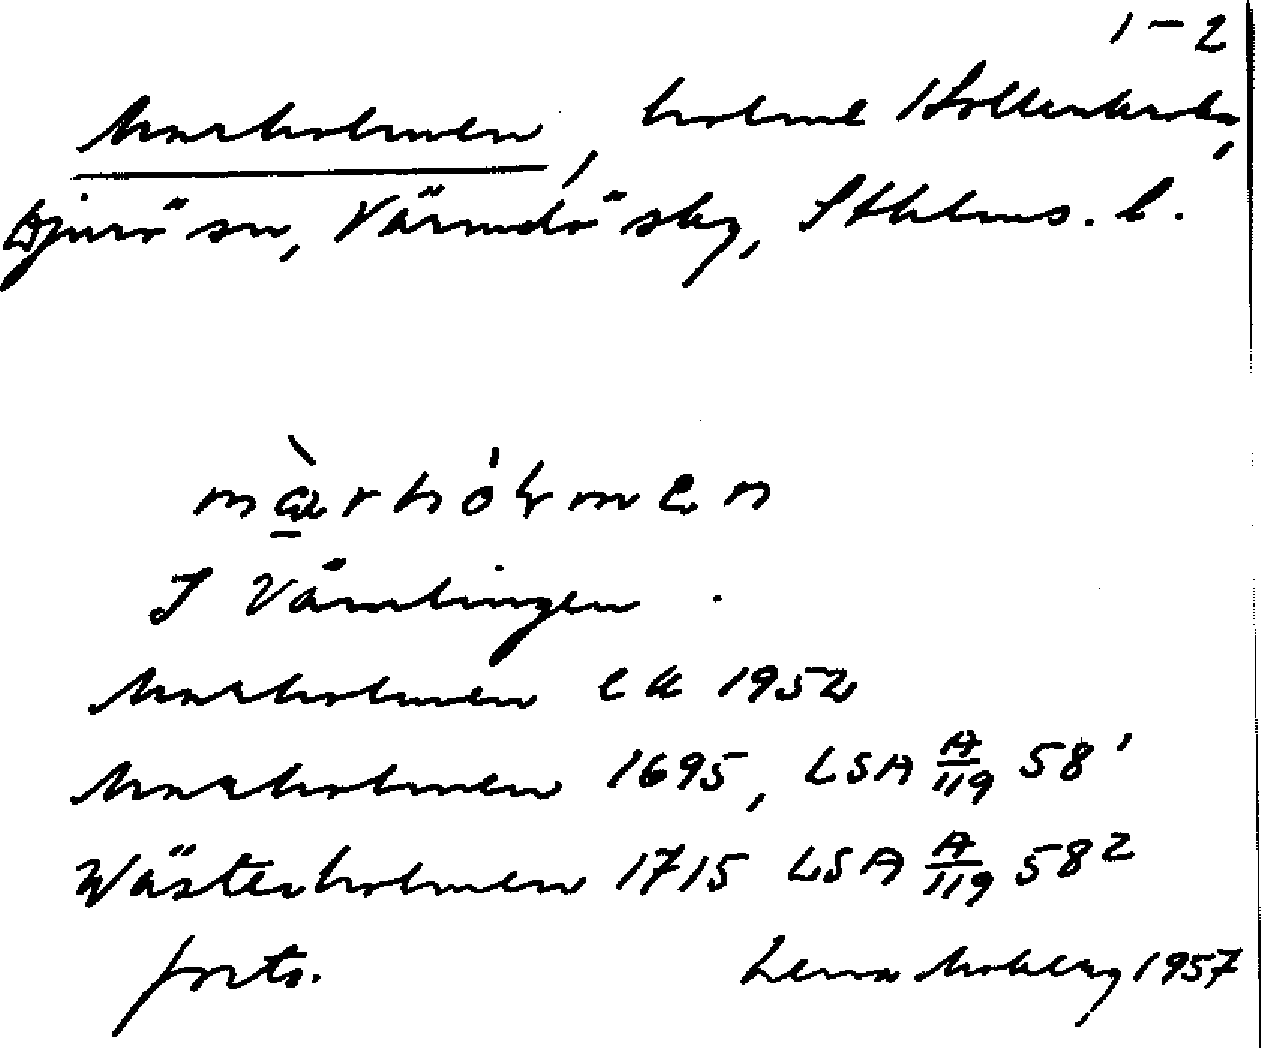 1-2
Marholmen, holme Hollenkroken,
Djurö sn, Värmdö skg, Sthlms. l.
màrhólmen
I Vämlingen.
Marholmen Ek 1952
Marholmen 1695, LSA A/119 58¹
Wästerholmen 1715 LSA A/119 58²
forts. Lena Moberg 1957